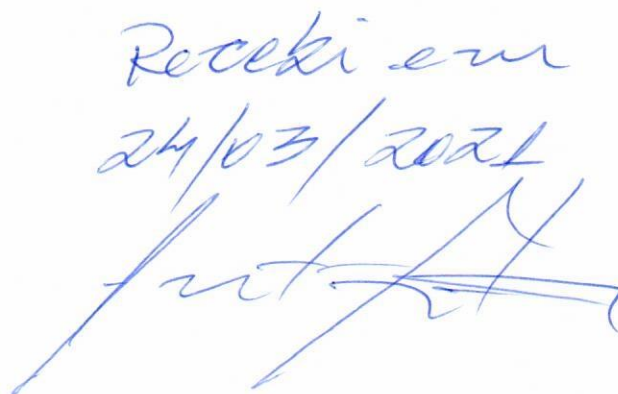 Recebi em
24/03/2021